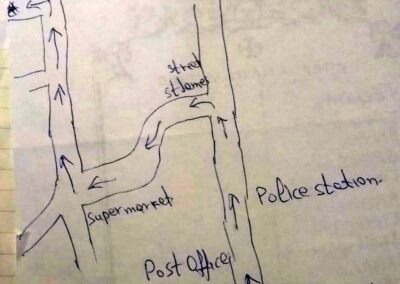 street
st James
Supermarket
Police station.
Post Office